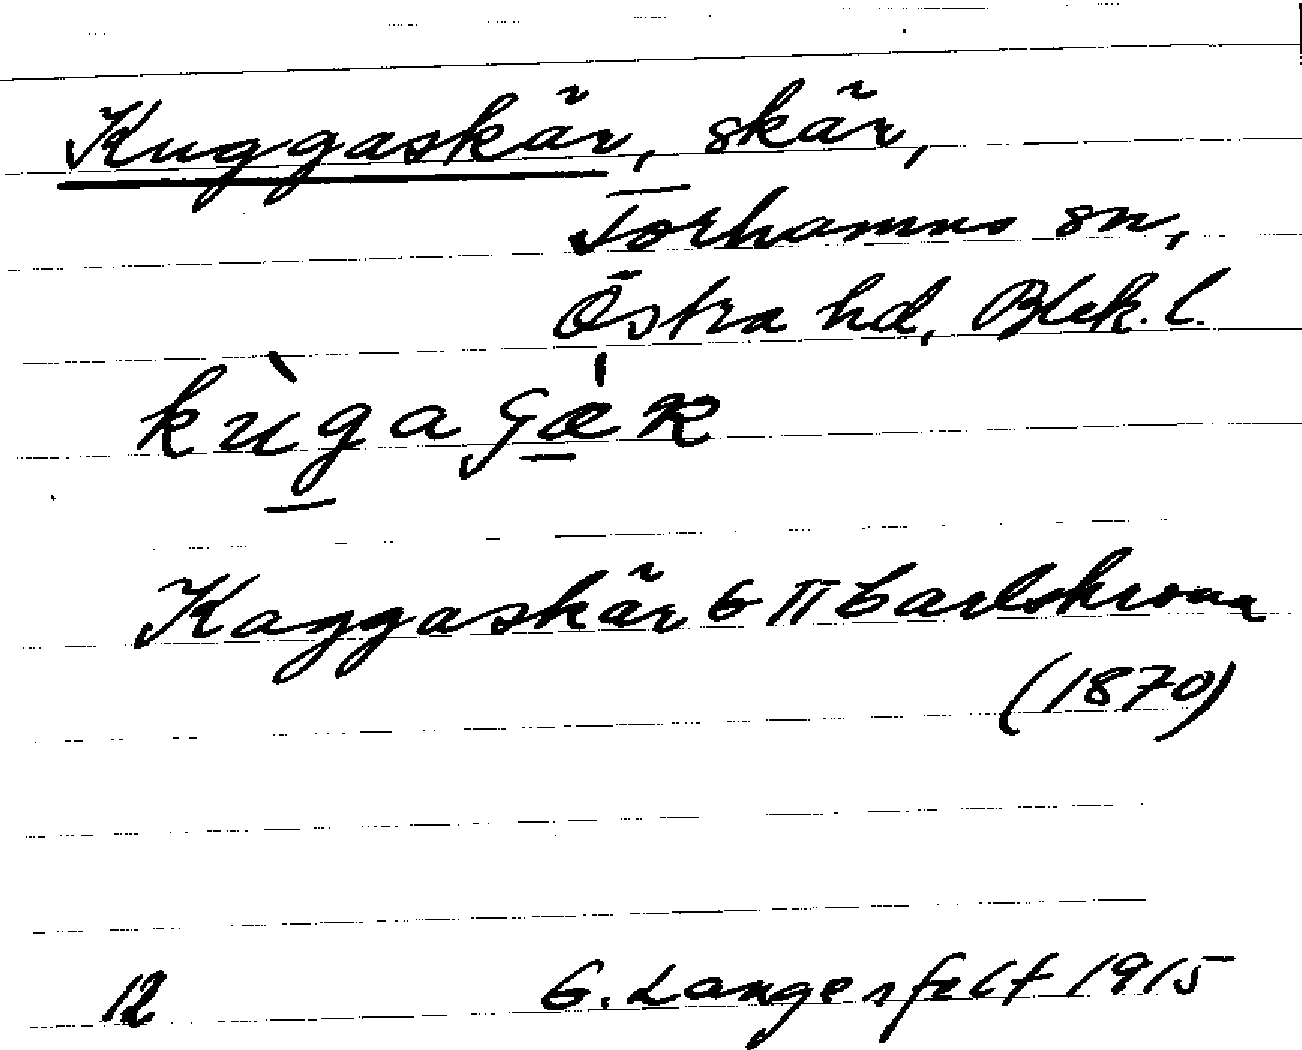 Kuggaskär, skär,
Torhamns sn,
Östra hd, Blek. l.
kùgaʂæ̀R
Kaggaskär G II Carlskrona
(1870)
12 G. Langenfelt 1915